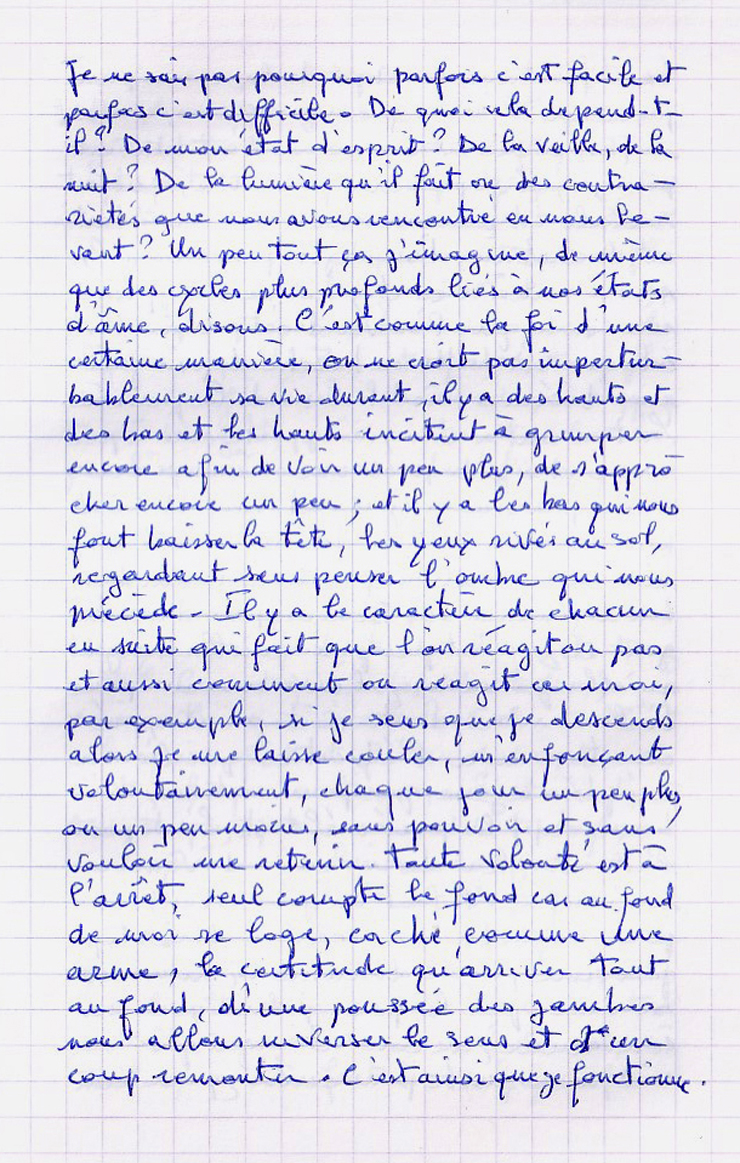 Je ne sais pas pourquoi parfois c'est facile et
parfois c'est difficile. De quoi cela dépend-t-
il ? De mon état d'esprit ? De la veille, de la
nuit ? De la lumière qu'il fait ou des contra-
riétés que nous avons rencontré en nous le-
vant ? Un peu tout ça j'imagine, de même
que des cycles plus profonds liés à nos états
d'âme, disons. C'est comme la foi d'une
certaine manière, on ne croit pas impertur-
bablement sa vie durant, il y a des hauts et
des bas et les hauts incitent à grimper
encore afin de voir un peu plus, de s'appro
cher encore un peu ; et il y a les bas qui nous
font baisser la tête, les yeux rivés au sol,
regardant sans penser l'ombre qui nous
précède. Il y a le caractère de chacun
en suite qui fait que l'on réagit ou pas
et aussi comment on réagit car moi,
par exemple, si je sens que je descends
alors je me laisse couler, m'enfonçant
volontairement, chaque jour un peu plus,
ou un peu moins, sans pouvoir et sans
vouloir me retenir. Toute volonté est à
l'arrêt, seul compte le fond car au fond
de moi se loge, caché comme une
arme, la certitude qu'arriver tout
au fond, d'une poussée des jambes
nous allons inverser le sens et d'un
coup remonter. C'est ainsi que je fonctionne.